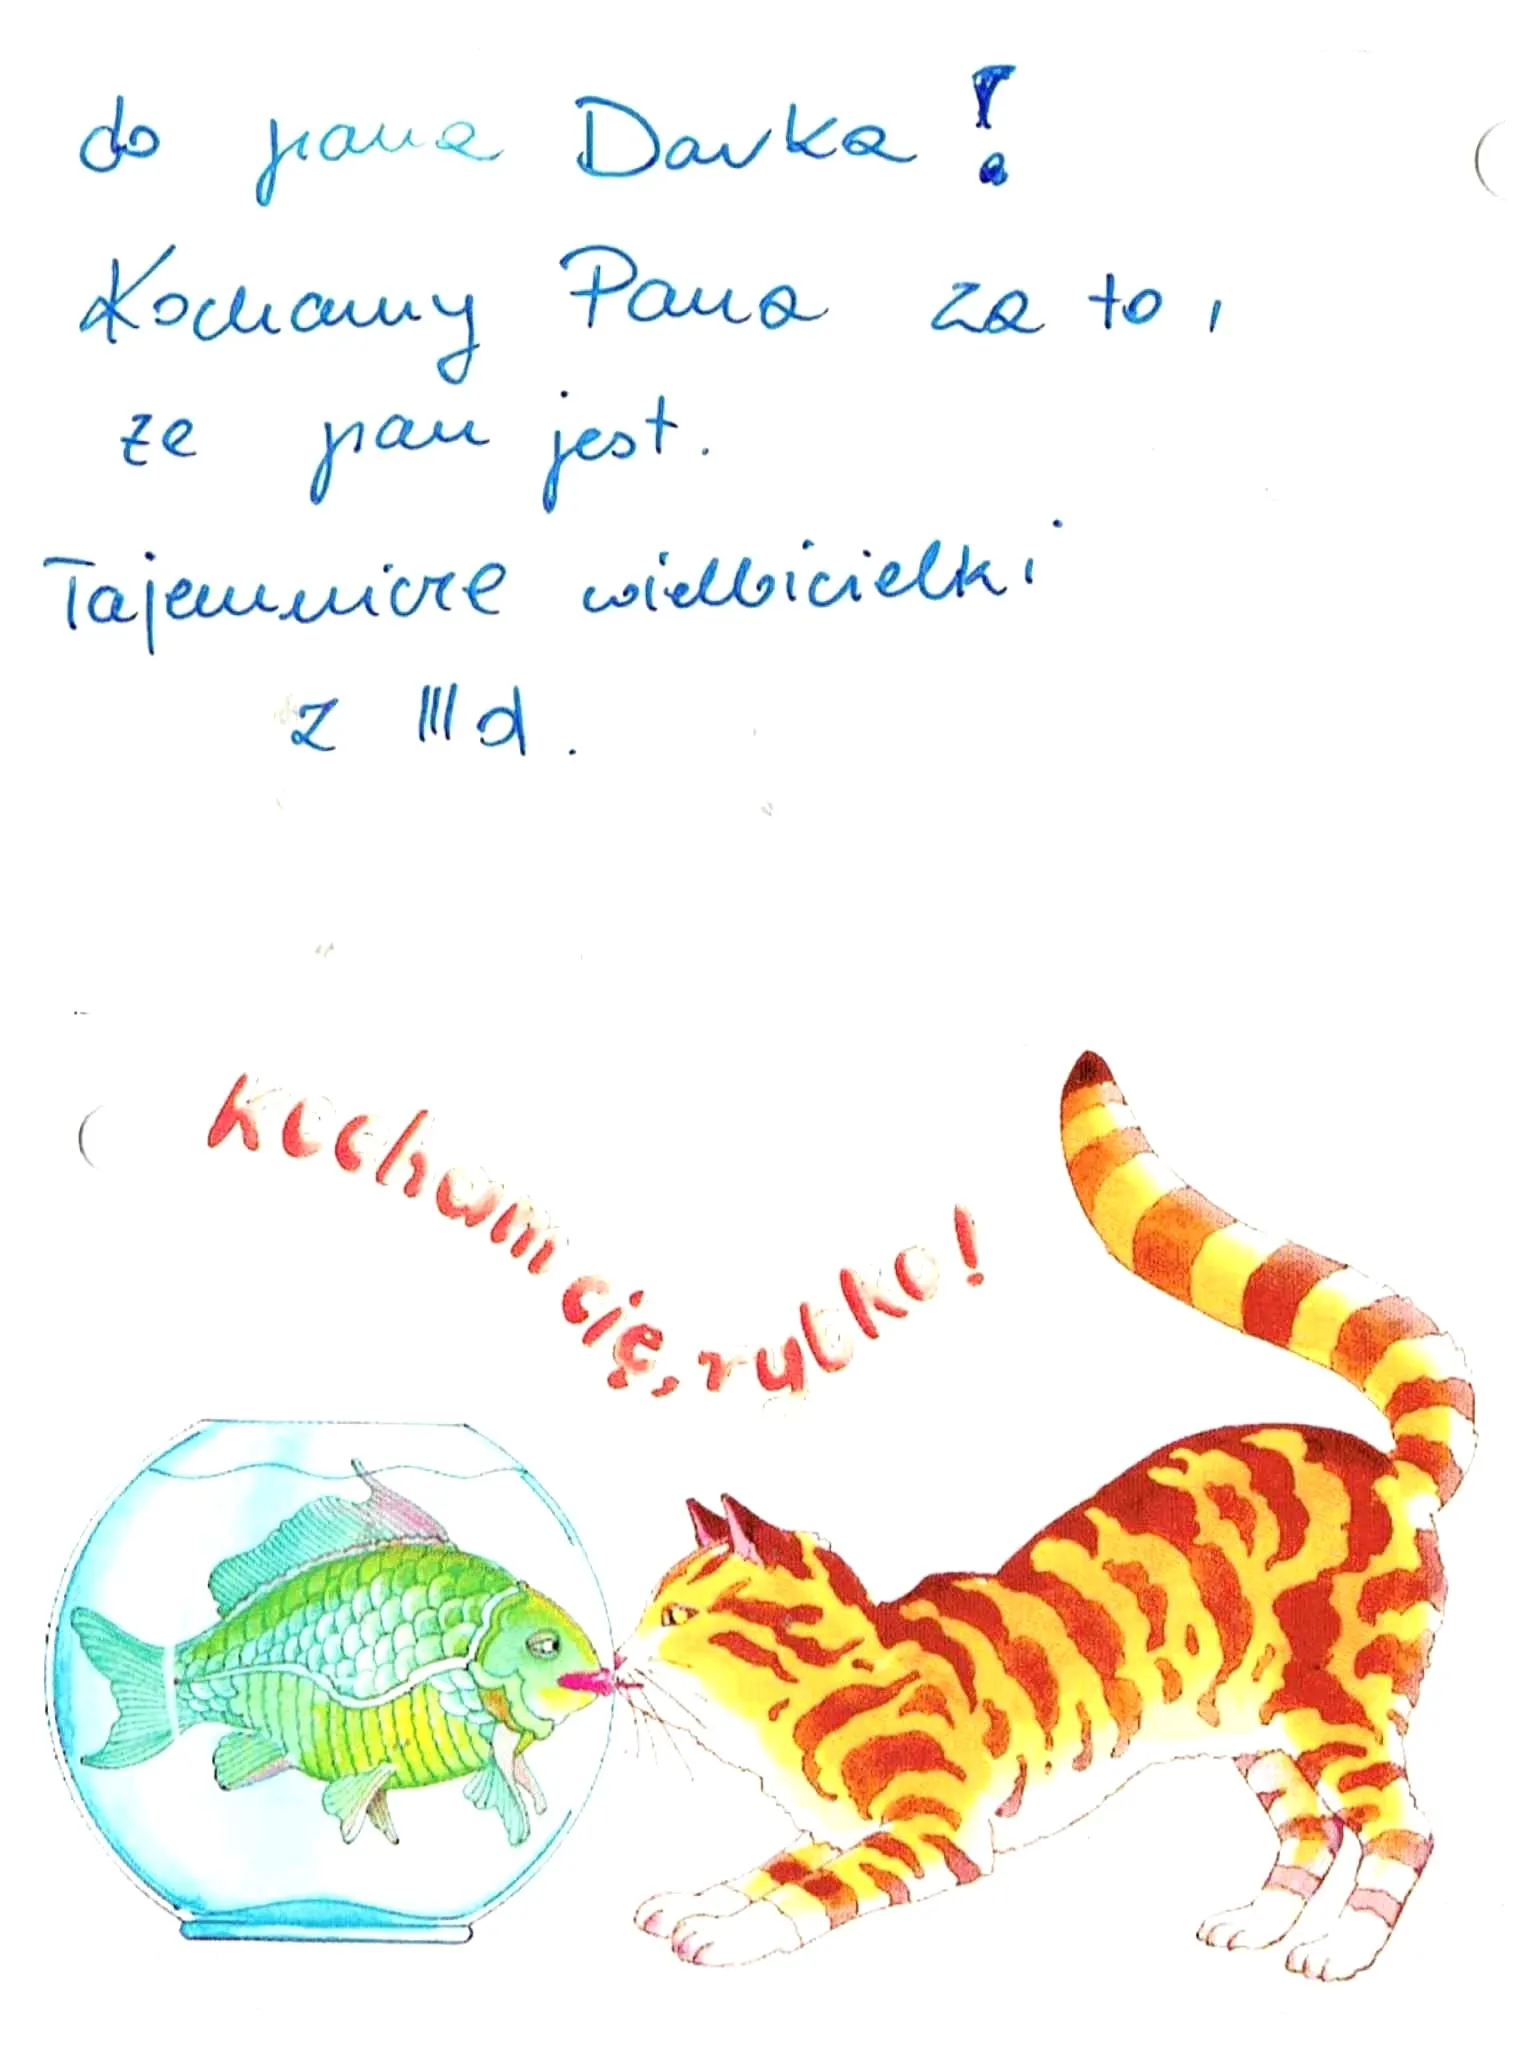 do pana Darka!
Kochamy Pana za to,
że pan jest.
Tajemnicze wielbicielki
z III d.
Kocham cię, rybko!